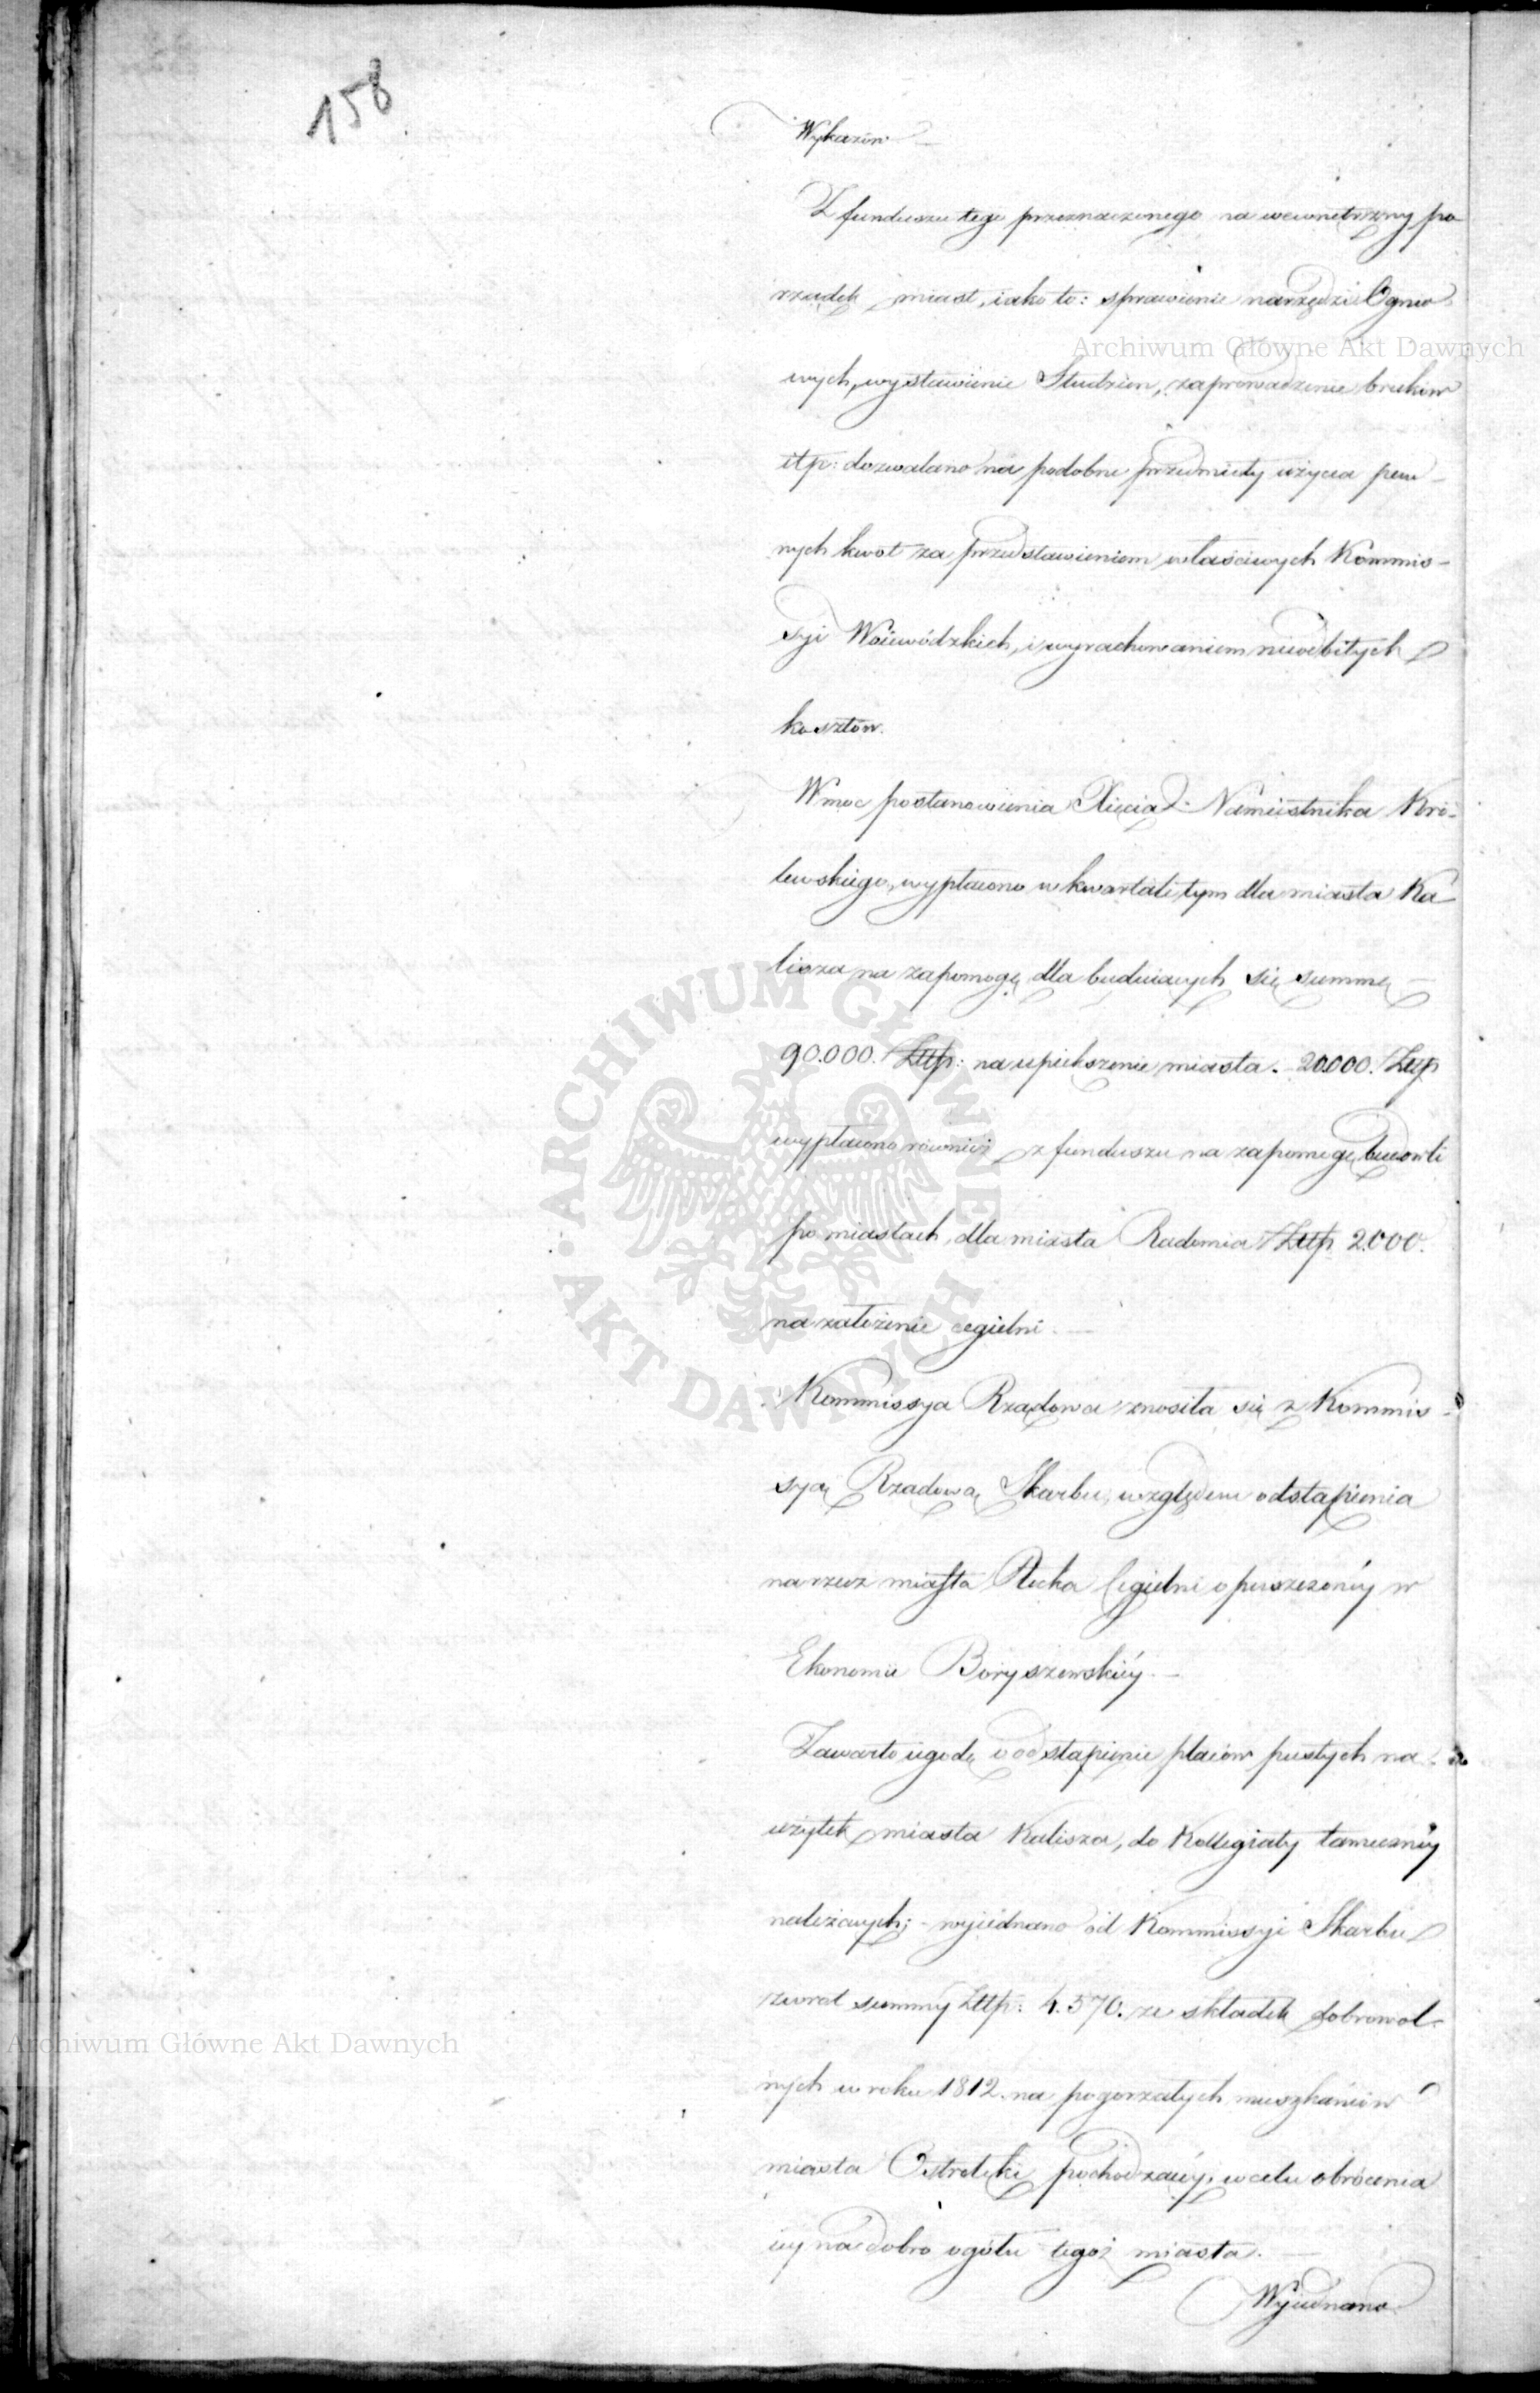 158
Wykazów
Z funduszu tego przeznaczonego na wewnętrzny po
rządek miast, iako to: sprawienie narzędzi Ognio
Archiwum Główne Akt Dawnych
wych, wystawienie Studzien, zaprowadzenie bruków
itp: dozwalano na podobne przedmioty użycia pew-
nych kwot za przedstawieniem właściwych Kommis-
syi Woiewódzkich, i wyrachowaniem nieodbitych
kosztów.
W moc postanowienia Xięcia Namiestnika Kró-
lewskiego, wypłacono w kwartale tym dla miasta Ka
lisza na zapomogę dla buduiących się summę
90.000. Złtp: na upiększenie miasta. 20.000. Złtp
wypłacono również z funduszu na zapomogę budowli
po miastach, dla miasta Radomia Złtp 2.000.
na założenie cegielni.
Kommissya Rządowa znosiła się z Kommis-
syą Rządową Skarbu, względem odstąpienia
na rzecz miasta Płocka Cegielni opuszczonéy w
Ekonomii Boryszewskiéy.
Zawarto ugodę o odstąpienie placów pustych na
użytek miasta Kalisza, do Kollegiaty tameczney
należących; - wyiednano od Kommissyi Skarbu
zwrot summy Złtp: 4.570. ze składek dobrowol-
Archiwum Główne Akt Dawnych
nych w roku 1812. na pogorzałych mieszkańców
miasta Ostrołęki pochodzącéy, w celu obrócenia
iey na dobro ogółu tegoż miasta.
Wyiednano
ARCHIWUM GŁÓWNE AKT DAWNYCH